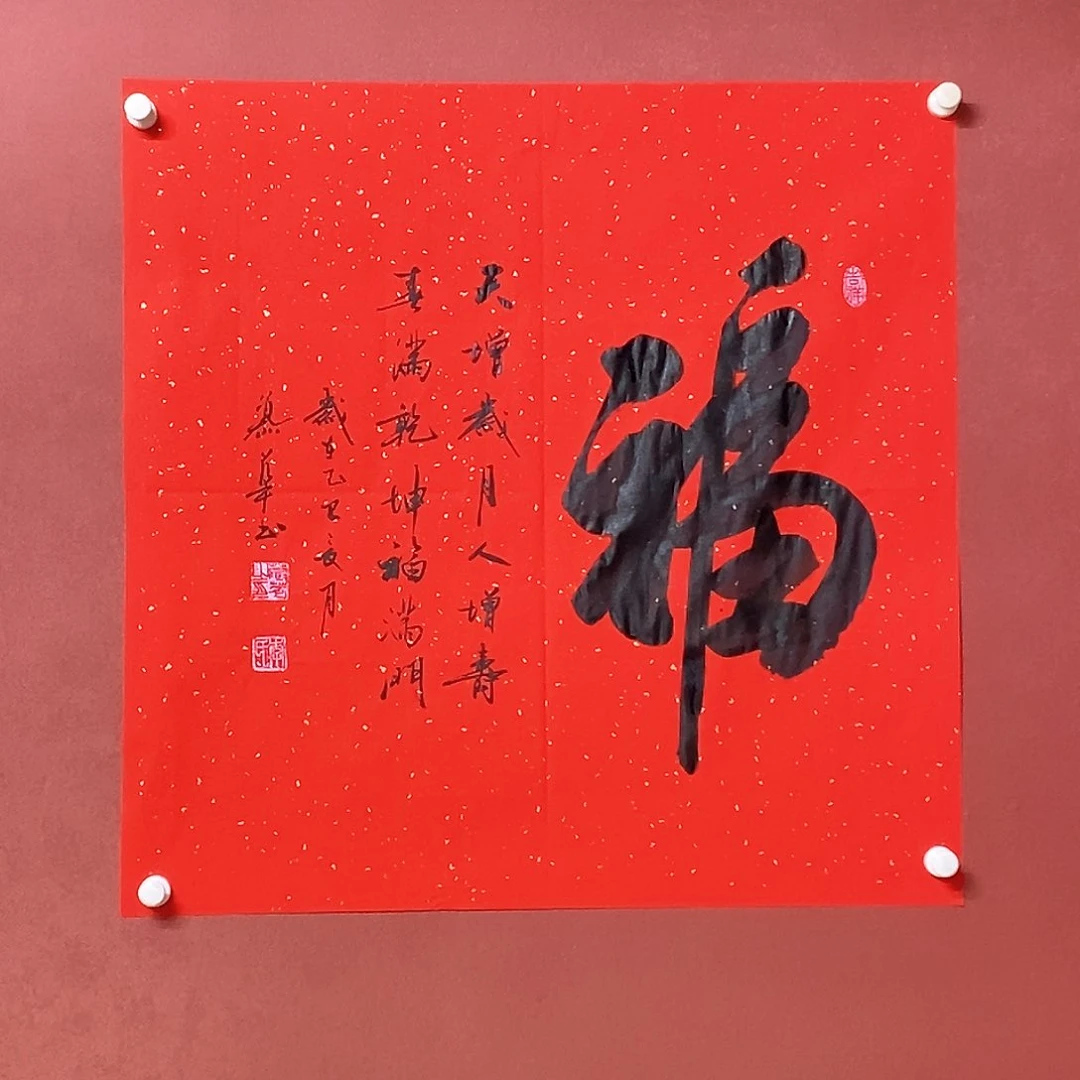 福
天增歲月人增壽
春滿乾坤福滿門
歲在乙巳亥月
慕華书